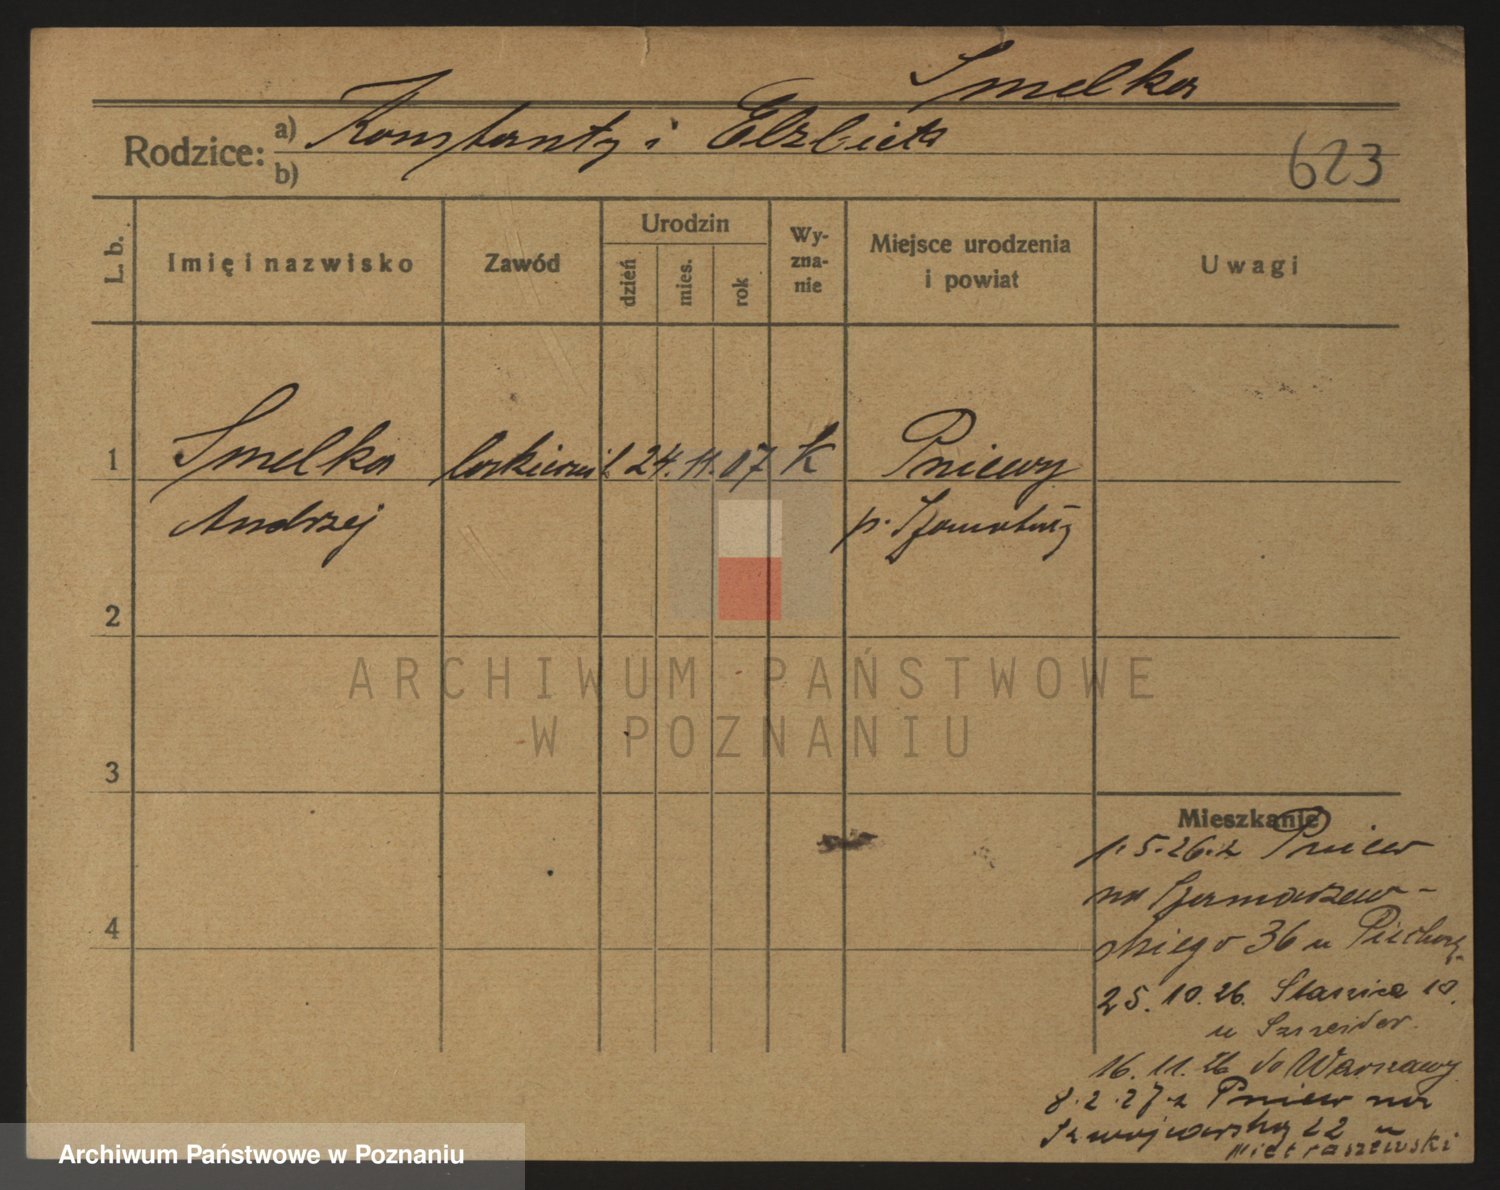 Smelka
Rodzice: a) Konstanty i Elżbieta
b)
623
L. b.
Imię i nazwisko
Zawód
Urodzin
dzień
mies.
rok
Wy-
zna-
nie
Miejsce urodzenia
i powiat
Uwagi
1 Smelka 24. 11. 07 K Pniewy
Andrzej p. Szamotuły
2
3
4
Mieszkanie
1. 5. 26. z Pniew
na
skiego 36 u
25. 10. 26. Staszica 10.
u
16. 11. 26 do Warszawy
8. 2. 27. z Pniew na
Szwajcarską 22 u
Pietraszewski
ARCHIWUM PAŃSTWOWE
W POZNANIU
Archiwum Państwowe w Poznaniu